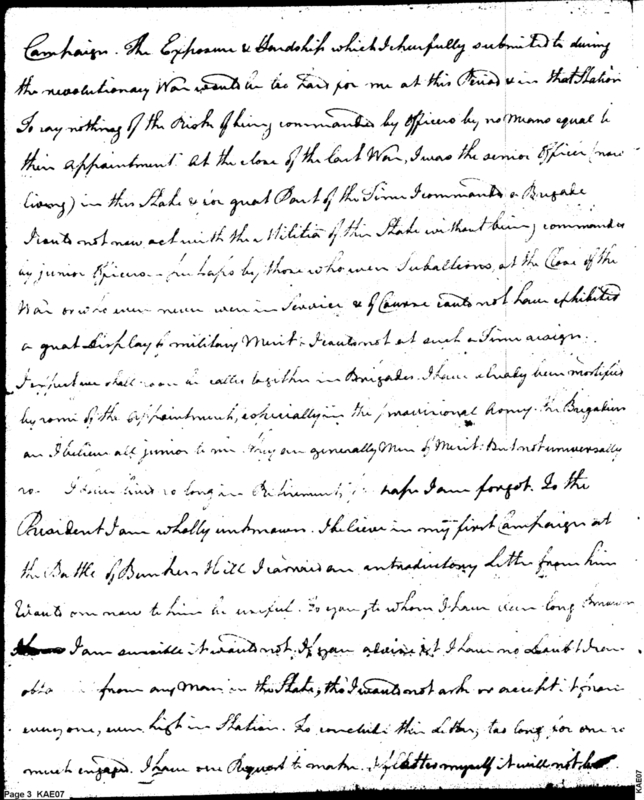 Campaign. The Exposure & Hardship which I cheerfully submitted to during
the revolutionary War would be too hard for me at this Period & in that Station
To say nothing of the Risk of being commanded by Officers by no Means equal to
their appointment At the close of the last War, I was the senior Officer (now
living) in this State & for great Part of the Time I commanded a Brigade
I could not now act with the Militia of this State without being commanded
by junior Officers - perhaps by those who were Subalterns, at the Close of the
War or who even never were in Service & of Course could not have exhibited
a great Display of military Merit & I could not at such a Time resign.
I expect we shall soon be called together in Brigades. I have already been mortified
by some of the appointments, especially in the provisional Army. The Brigadiers
are I believe all junior to me They are generally Men of Merit: But not universally
so. I have lived so long in Retirement, haps I am forgot. To the
President I am wholly unknown. I believe in my first Campaign at
the Battle of Bunkers Hill I carried an introductory Letter from him
Would one now to him be useful. To you, to whom I have been long known
I am sensible it would not. If you advise it I have no Doubt I can
obta from any Man in the State; tho' I would not ask or accept it from
everyone, even high in Station. To conclude this Letter, too long for one so
much engaged. I have one Request to make. If I flatter myself it will not be
Page 3 KAE07
KAE07